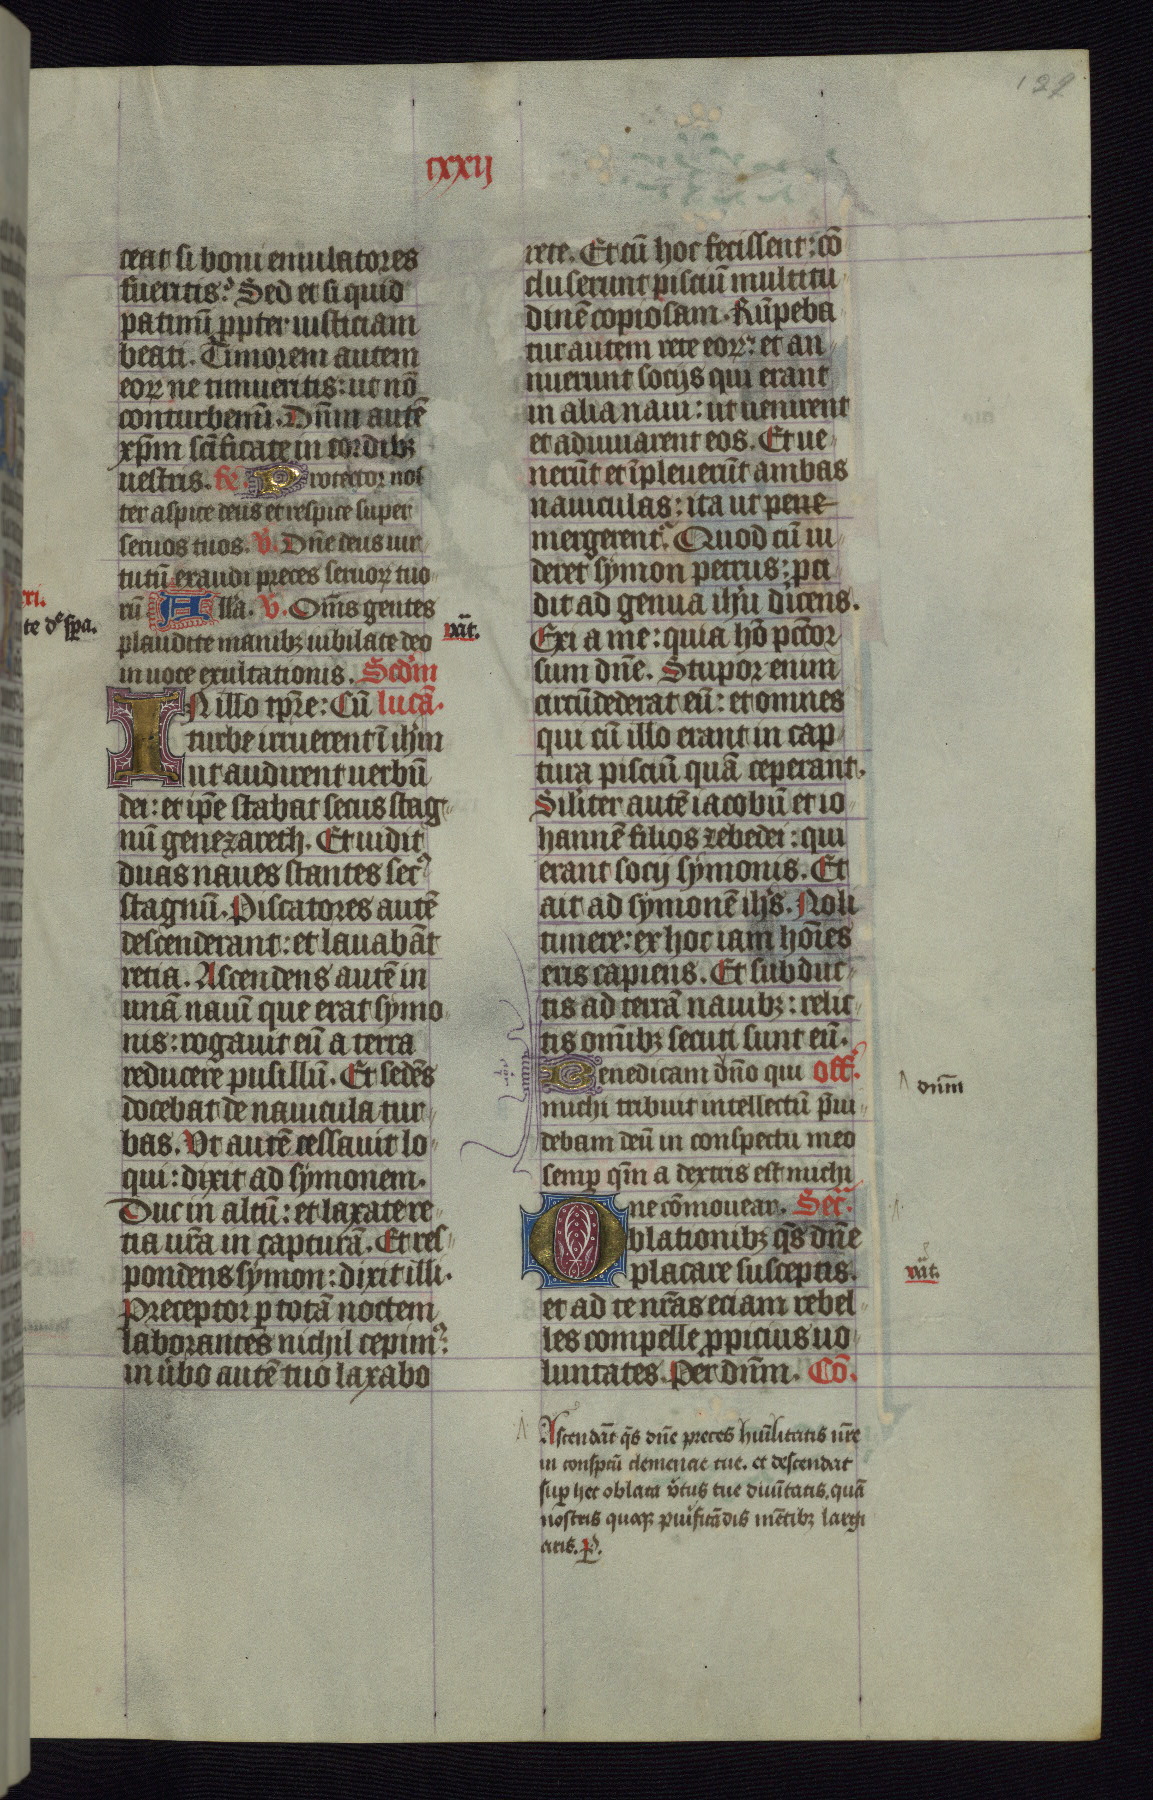 122
cxxij
ceat si boni emulatores
fueritis? Sed et si quid
patimĩ ꝓpter iusticiam
beati. Timorem autem
eoꝝ ne timueritis: ut nõ
conturbemĩ. Dñm autẽ
xp̃m sc̃ificate in cordibꝫ
vestris. Protector nos
ter aspice deus et respice super
seruos tuos. V̇. Dñe deus uir
tutũ exaudi preces seruoꝝ tuo
rũ Alla. V̇. Om̃s gentes
plaudite manibꝫ iubilate deo
in uoce exultationis. Scd̃m
IN illo tp̃re: Cũ lucã.
turbe irruerent ĩ ih̃m
ut audirent uerbũ
dei: et ip̃e stabat secus stag
nũ genezareth. Et uidit
duas naues stantes secꝰ
stagnũ. Piscatores autẽ
descenderant: et lauabãt
retia. Ascendens autẽ in
unã nauĩ que erat symo
nis: rogauit eũ a terra
reducere pusillũ. Et sedẽs
docebat de nauicula tur
bas. Vt autẽ cessauit lo
qui: dixit ad symonem.
Duc in altũ: et laxate re
tia ur̃a in capturã. Et res
pondens symon: dixit illi.
Preceptor ꝑ totã noctem
laborantes nichil cepimꝰ:
in ũbo autẽ tuo laxabo
rete. Et cũ hoc fecissent: cõ
cluserunt pisciũ multitu
dinẽ copiosam. Rũpeba
tur autem rete eoꝝ: et an
nuerunt socijs qui erant
in alia naui: ut uenirent
et adiuuarent eos. Et ue
nerũt et ĩpleuerũt ambas
nauiculas: ita ut pene
mergerentᷣ. Quod cũ ui
deret symon petrus: pci
dit ad genua ih̃u dicens.
Exi a me: quia hõ pctõr
sum dñe. Stupor enim
circũdederat eũ: et omnes
qui cũ illo erant in cap
tura pisciũ quã ceperant.
Silĩter autẽ iacobũ et io
hannẽ filios zebedei: qui
erant socij symonis. Et
ait ad symonẽ ih̃s. Noli
timere: ex hoc iam hoĩes
eris capiens. Et subduc
tis ad terrã nauibꝫ: relic
tis om̃ibꝫ secuti sunt eũ.
Benedicam dño qui off̃.
michi tribuit intellectũ p̃ui
debam deũ in conspectu meo
semꝑ qm̃ a dextris est michi
ne cõmouear. Secr̃.
Oblationibꝫ qs̃ dñe
placare susceptis.
et ad te nr̃as eciam rebel
les compelle ꝓpicius uo
luntates. Per dñm. Cõ.
vãt.
dñm
vãt.
Ascendãt qs̃ dñe preces hũilitatis nr̃e
in conspc̃u clemencie tue. et descendat
suꝑ hec oblata ṽtus tue diuĩtatis, quã
nostris quoqꝫ purificãdis mẽtibꝫ largi
aris. P.